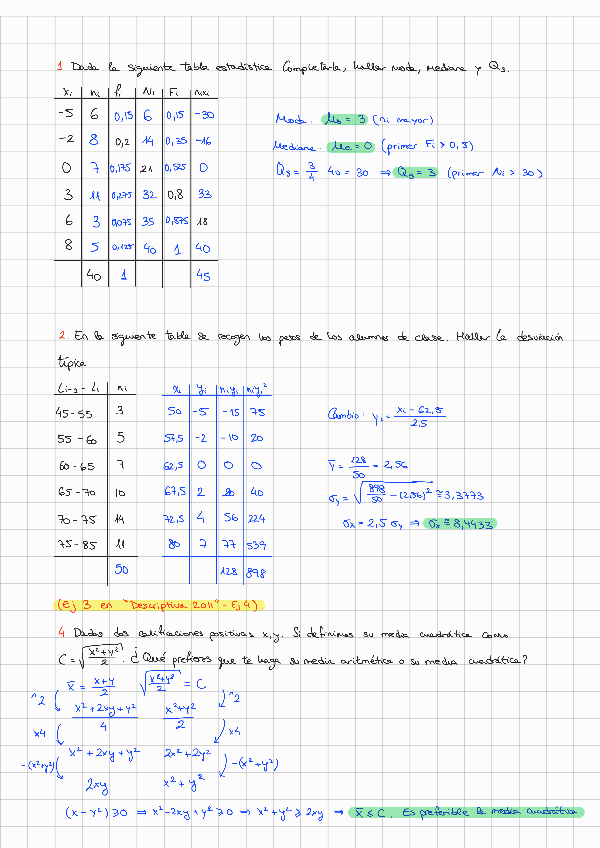 1 Dada la siguiente tabla estadística Completarla, hallar moda, mediana y Q₃.
xi ni fi Ni Fi nixi
-5 6 0,15 6 0,15 -30
-2 8 0,2 14 0,35 -16
0 7 0,175 21 0,525 0
3 11 0,275 32 0,8 33
6 3 0,075 35 0,875 18
8 5 0,125 40 1 40
40 1 45
Moda. Mo = 3 (ni mayor)
Mediana. Me = 0 (primer Fi > 0,5)
Q₃ = 3/4 40 = 30 ⇒ Q₃ = 3 (primer Ni > 30)
2. En la siguiente tabla se recogen los pesos de los alumnos de clase. Hallar la desviación
típica
Li-1 - Li ni xi yi niyi niyi²
45-55 3 50 -5 -15 75
55-60 5 57,5 -2 -10 20
60-65 7 62,5 0 0 0
65-70 10 67,5 2 20 40
70-75 14 72,5 4 56 224
75-85 11 80 7 77 539
50 128 898
Cambio: yi = (xi - 62,5)/2,5
ȳ = 128/50 = 2,56
σy = √(898/50 - (2,56)²) ≅ 3,3773
σx = 2,5 σy ⇒ σx ≅ 8,4433
(Ej 3 en "Descriptiva 2011" - Ej 4)
4 Dadas dos calificaciones positivas x,y. Si definimos su media cuadrática como
C = √((x²+y²)/2). ¿Qué prefieres que te haga su media aritmética o su media cuadrática?
x̄ = (x+y)/2 √((x²+y²)/2) = C
^2 (x²+2xy+y²)/4 (x²+y²)/2 ^2
x4 x²+2xy+y² 2x²+2y² x4
-(x²+y²) 2xy x²+y² -(x²+y²)
(x-y²) ≥ 0 ⇒ x²-2xy+y² ≥ 0 ⇒ x²+y² ≥ 2xy ⇒ x̄ ≤ C. Es preferible la media cuadrática